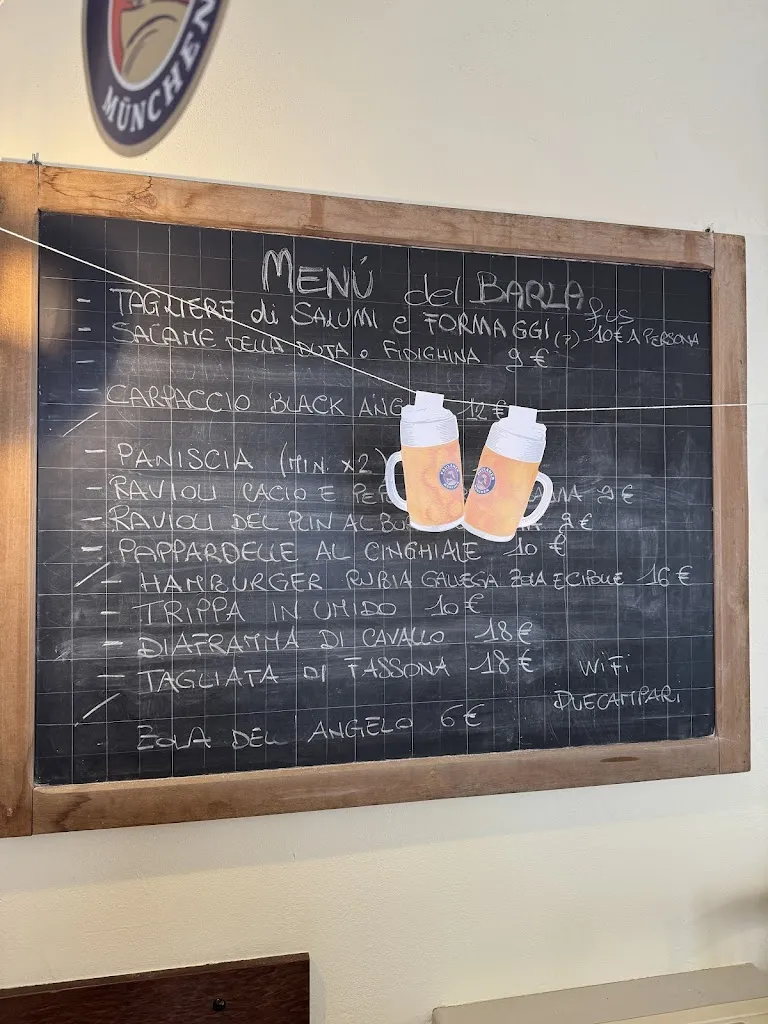 MÜNCHEN
MENÚ del BARLA
- TAGLIERE di SALUMI e FORMAGGI (7) 10€ A PERSONA
- SALAME DELLA DUJA o FIDIGHINA 9 €
- CARPACCIO BLACK ANG 12€
- PANISCIA (MIN. x2)
- RAVIOLI CACIO E 9 €
- RAVIOLI DEL PLIN AL 9 €
- PAPPARDELLE AL CINGHIALE 10 €
- HAMBURGER RUBIA GALLEGA ZOLA E CIPOLLE 16 €
- TRIPPA IN UMIDO 10 €
- DIAFRAMMA DI CAVALLO 18€
- TAGLIATA DI FASSONA 18€
WiFi
DUECAMPARI
- ZOLA DELL ANGELO 6 €